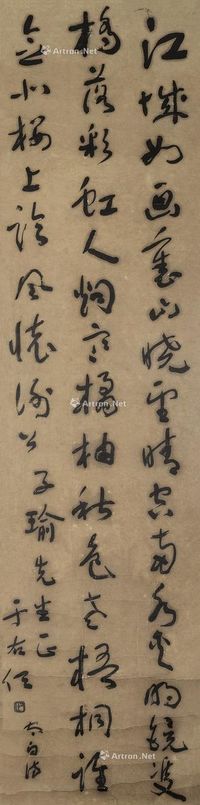 江城如画里山晓望晴空两水夹明镜双
桥落彩虹人烟寒橘柚秋色老梧桐谁
念北楼上临风怀谢公子瑜先生正
于右任
太白诗
Artron.Net
Artron.Net
Artron.Net
Artron.Net